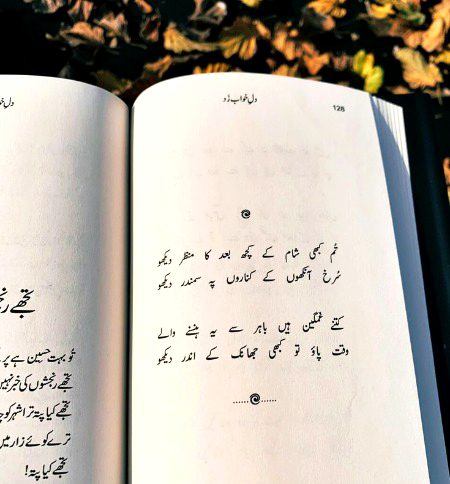 دلِ خواب زد
128
تم کبھی شام کے کچھ بعد کا منظر دیکھو
سُرخ آنکھوں کے کناروں پہ سمندر دیکھو
کتنے غمگین ہیں باہر سے یہ ہنسنے والے
وقت پاؤ تو کبھی جھانک کے اندر دیکھو
دلِ
تجھے
تُو بہت حسین ہے پر
تجھے رنجشوں کی خبر نہیں
تجھے کیا پتہ ترا شہر
ترے کوئے زار میں
تجھے کیا پتہ!